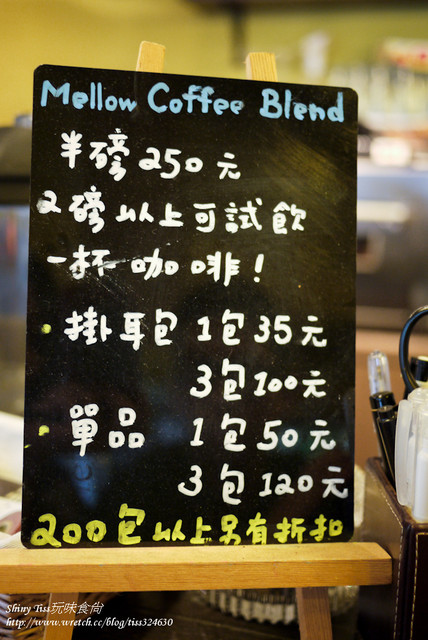 Mellow Coffee Blend
半磅250元
2磅以上可試飲
一杯咖啡!
·掛耳包 1包35元
3包100元
·單品 1包50元
3包120元
200包以上另有折扣
Shiny Tiss玩味食尚
http://www.wretch.cc/blog/tiss324630